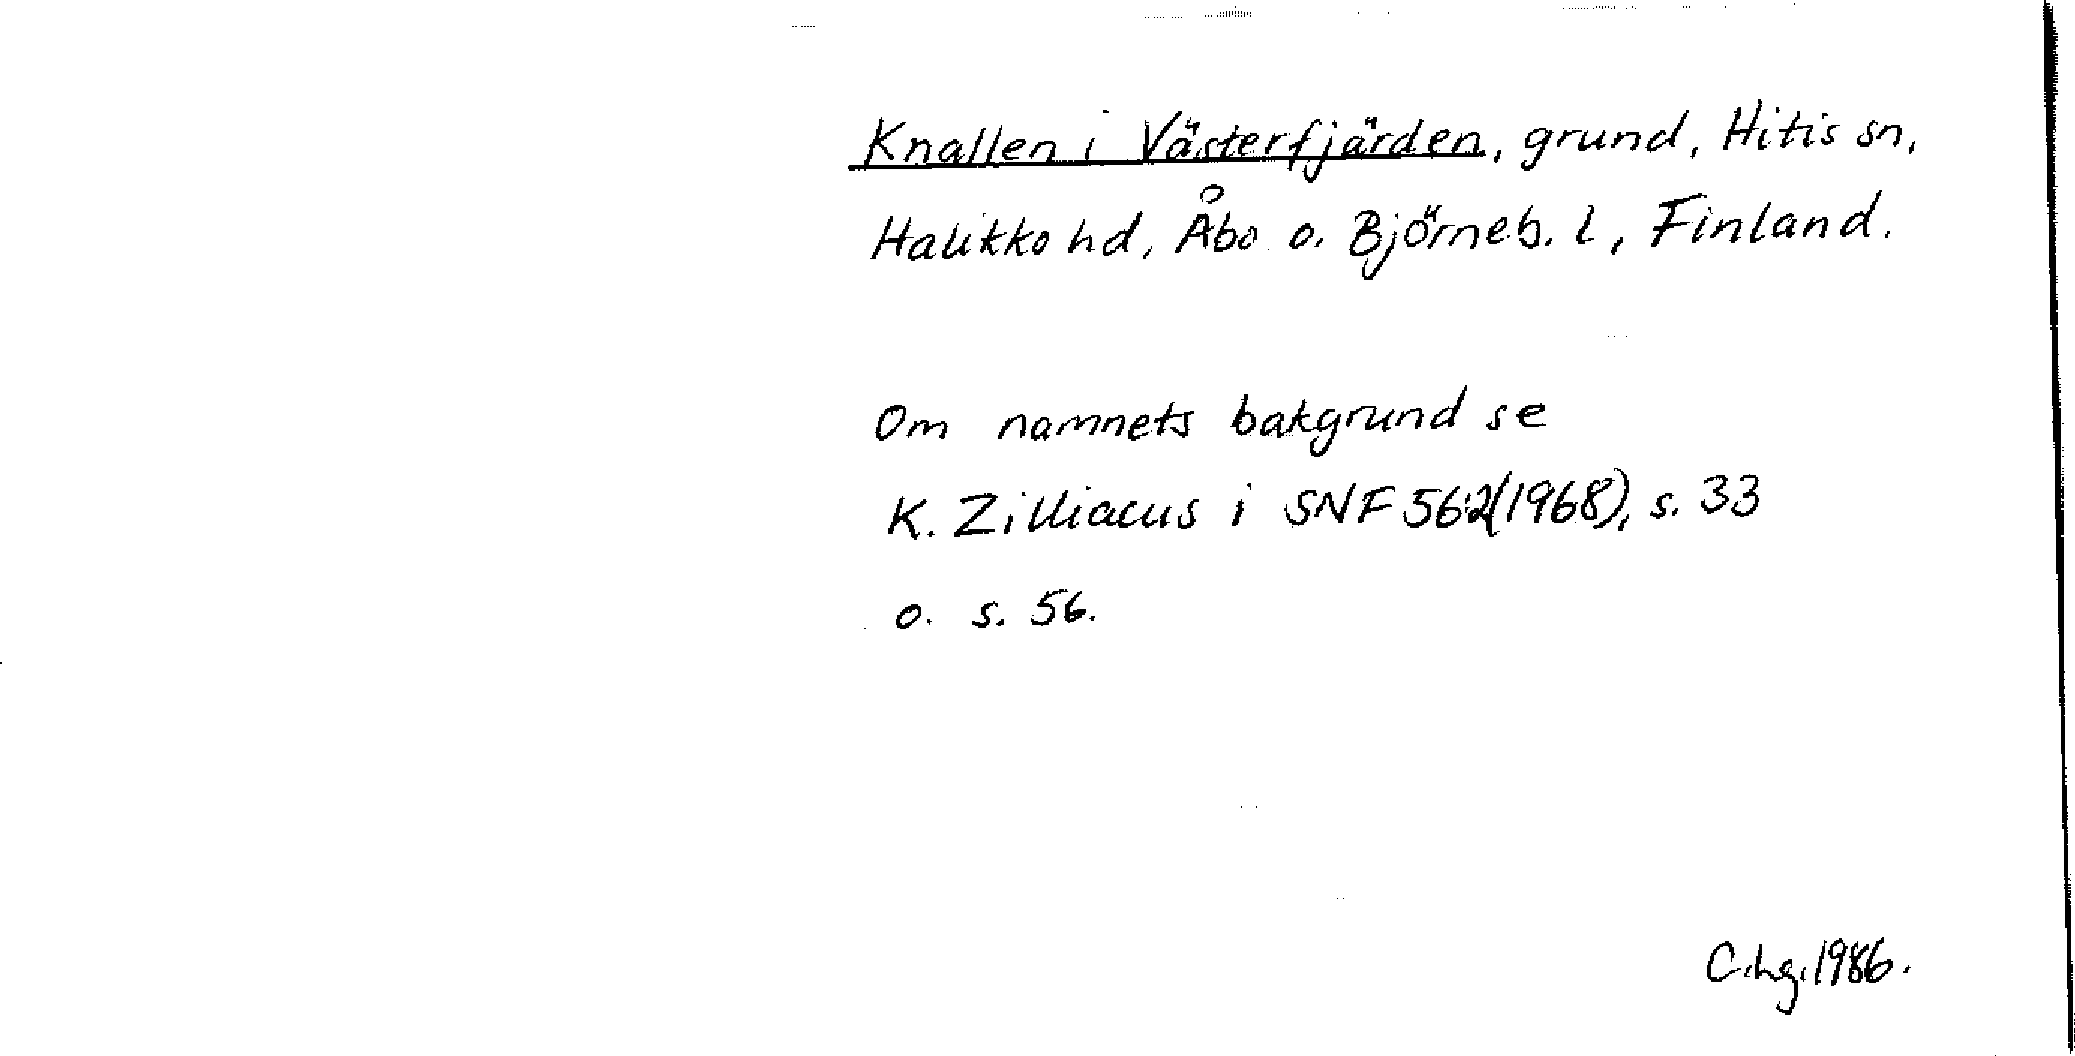 Knallen i Västerfjärden, grund, Hitis sn,
Halikko hd, Åbo o. Björneb. l, Finland.
Om namnets bakgrund se
K. Zilliacus i SNF 56:2(1968), s. 33
o. s. 56.
C.hg.1986.